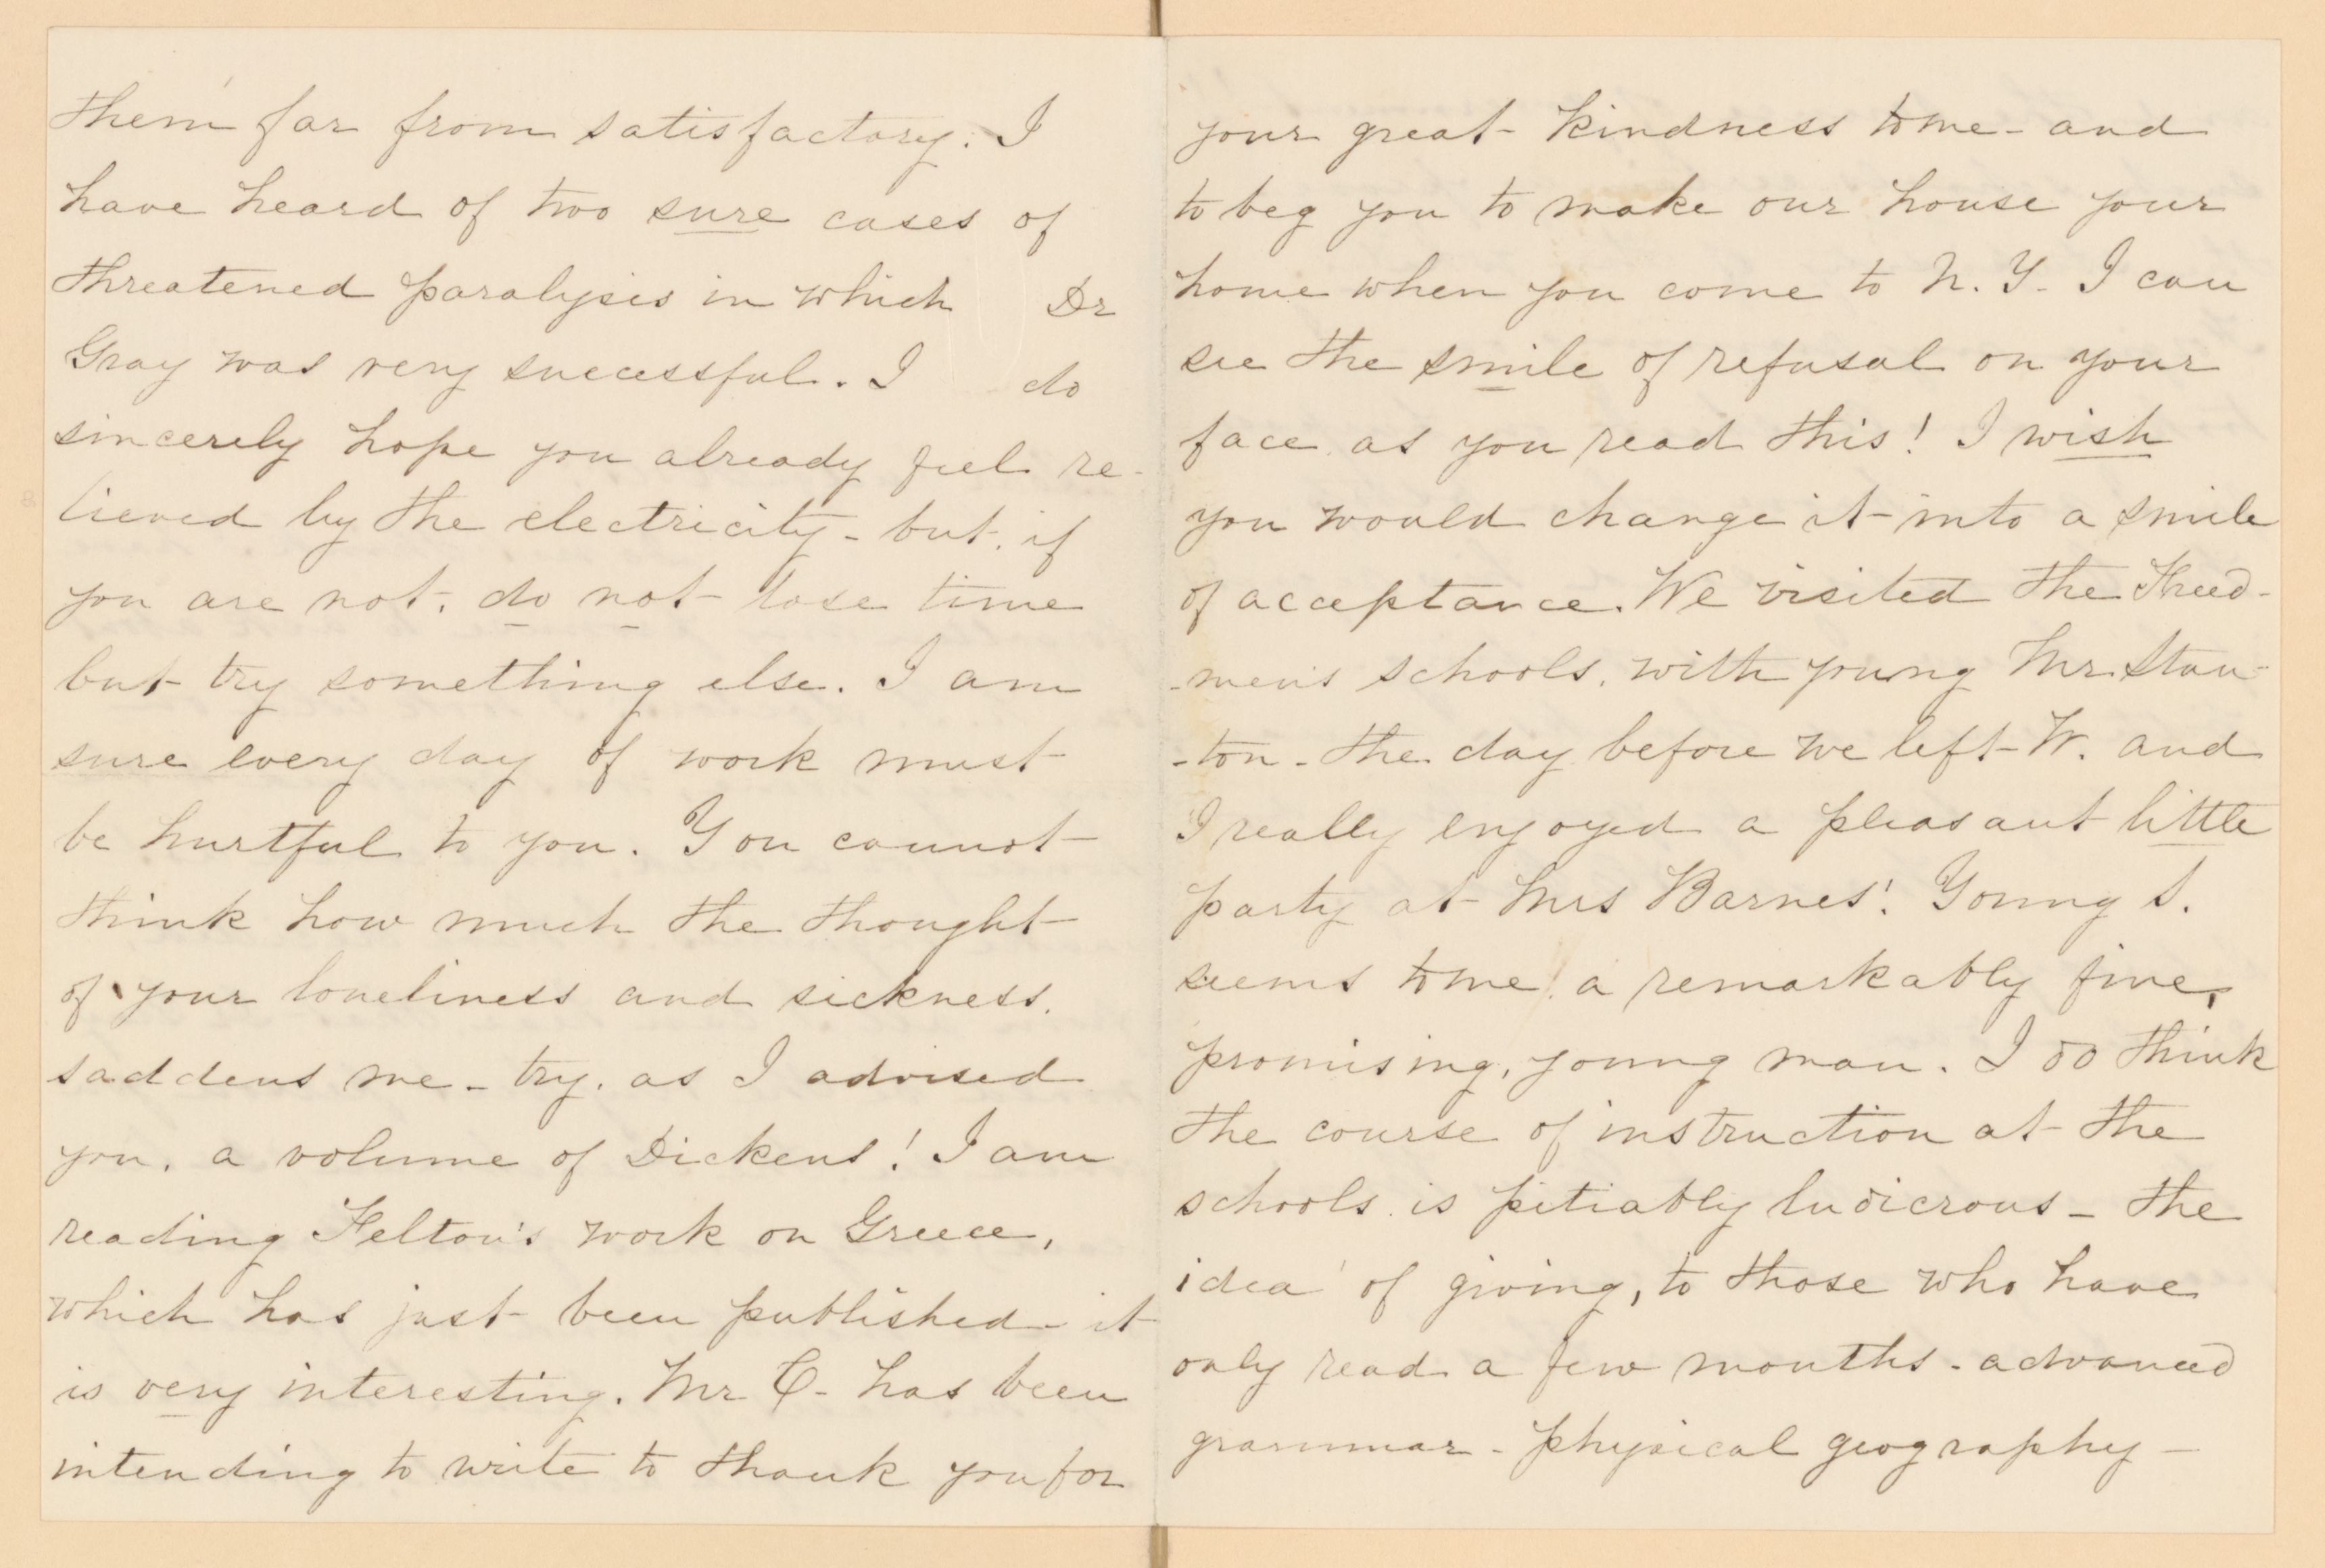 them far from satisfactory. I
have heard of two sure cases of
threatened paralysis in which Dr
Gray was very successful. I do
sincerely hope you already feel re-
lieved by the electricity - but, if
you are not, do not lose time
but try something else. I am
sure every day of work must
be hurtful to you. You cannot
think how much the thought
of your loneliness and sickness.
saddens me - try, as I advised
you, a volume of Dickens! I am
reading Felton's work on Greece,
which has just been published - it
is very interesting. Mr C- has been
intending to write to thank you for
your great kindness to me - and
to beg you to make our house your
home when you come to N. Y. I can
see the smile of refusal on your
face as you read this! I wish
you would change it into a smile
of acceptance. We visited the Freed-
-men's schools, with young Mr. Stan-
-ton - the day before we left W. and
I really enjoyed a pleasant little
party at Mrs Barnes'. Young S.
seems to me, a remarkably fine,
promising, young man. I do think
the course of instruction at the
schools is pitiably ludicrous - the
idea of giving, to those who have
only read a few months - advanced
grammar - physical geography -